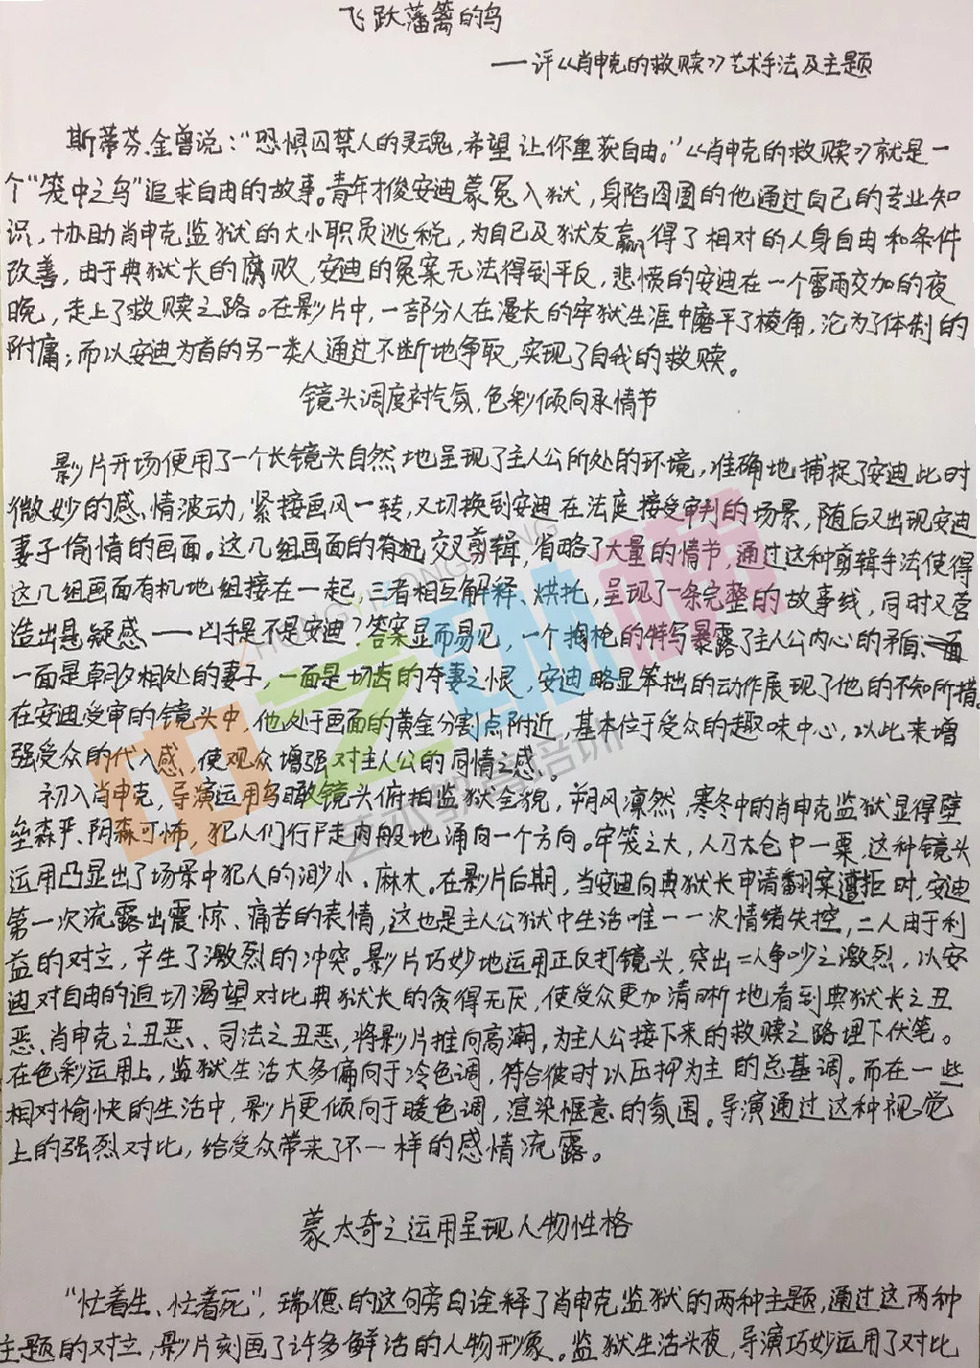 飞跃藩篱的鸟
——评《肖申克的救赎》艺术手法及主题
斯蒂芬.金曾说:“恐惧囚禁人的灵魂,希望让你重获自由。”《肖申克的救赎》就是一
个“笼中之鸟”追求自由的故事。青年才俊安迪蒙冤入狱,身陷囹圄的他通过自己的专业知
识,协助肖申克监狱的大小职员逃税,为自己及狱友赢得了相对的人身自由和条件
改善,由于典狱长的腐败,安迪的冤案无法得到平反,悲愤的安迪在一个雷雨交加的夜
晚,走上了救赎之路。在影片中,一部分人在漫长的牢狱生涯中磨平了棱角,沦为了体制的
附庸;而以安迪为首的另一类人通过不断地争取,实现了自我的救赎。
镜头调度衬气氛,色彩倾向承情节
影片开场便用了一个长镜头自然地呈现了主人公所处的环境,准确地捕捉了安迪此时
微妙的感情波动,紧接画风一转,又切换到安迪在法庭接受审判的场景,随后又出现安迪
妻子偷情的画面。这几组画面的有机交叉剪辑,省略了大量的情节,通过这种剪辑手法使得
这几组画面有机地组接在一起,三者相互解释、烘托,呈现了一条完整的故事线,同时又营
造出悬疑感——凶手是不是安迪?答案显而易见,一个掏枪的特写暴露了主人公内心的矛盾、
一面是朝夕相处的妻子,一面是切齿的夺妻之恨,安迪略显笨拙的动作展现了他的不知所措。
在安迪受审的镜头中,他处于画面的黄金分割点附近,基本位于受众的趣味中心,以此来增
强受众的代入感,使观众增强对主人公的同情之感。
初入肖申克,导演运用鸟瞰镜头俯拍监狱全貌,朔风凛然,寒冬中的肖申克监狱显得壁
垒森严、阴森可怖,犯人们行尸走肉般地涌向一个方向。牢笼之大,人乃太仓中一粟,这种镜头
运用凸显出了场景中犯人的渺小、麻木。在影片后期,当安迪向典狱长申请翻案遭拒时,安迪
第一次流露出震惊、痛苦的表情,这也是主人公狱中生活唯一一次情绪失控,二人由于利
益的对立,产生了激烈的冲突。影片巧妙地运用正反打镜头,突出二人争吵之激烈,以安
迪对自由的迫切渴望对比典狱长的贪得无厌,使受众更加清晰地看到典狱长之丑
恶、肖申克之丑恶、司法之丑恶,将影片推向高潮,为主人公接下来的救赎之路埋下伏笔。
在色彩运用上,监狱生活大多偏向于冷色调,符合彼时以压抑为主的总基调。而在一些
相对愉快的生活中,影片更倾向于暖色调,渲染惬意的氛围。导演通过这种视觉
上的强烈对比,给受众带来了不一样的感情流露。
蒙太奇之运用呈现人物性格
“忙着生、忙着死”,瑞德的这句旁白诠释了肖申克监狱的两种主题,通过这两种
主题的对立,影片刻画了许多鲜活的人物形象。监狱生活头夜,导演巧妙运用了对比